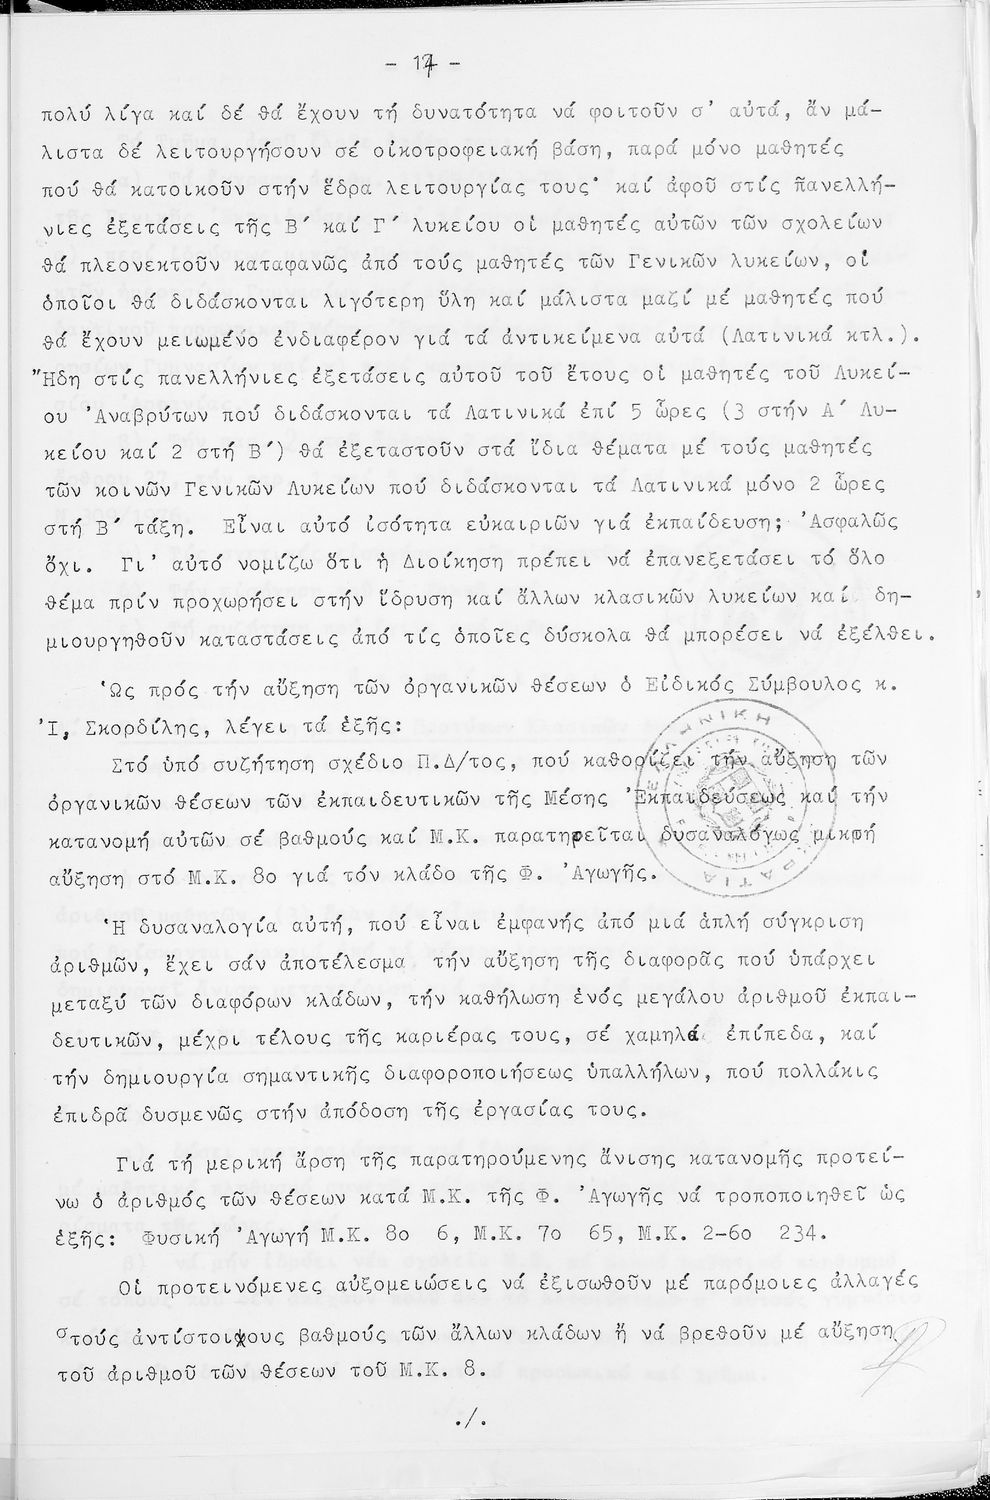 - 14 -
πολύ λίγα καί δέ θά ἔχουν τή δυνατότητα νά φοιτοῦν σ' αὐτά, ἄν μά-
λιστα δέ λειτουργήσουν σέ οἰκοτροφειακή βάση, παρά μόνο μαθητές
πού θά κατοικοῦν στήν ἕδρα λειτουργίας τους· καί ἀφοῦ στίς πανελλή-
νιες ἐξετάσεις τῆς Β´ καί Γ´ λυκείου οἱ μαθητές αὐτῶν τῶν σχολείων
θά πλεονεκτοῦν καταφανῶς ἀπό τούς μαθητές τῶν Γενικῶν λυκείων, οἱ
ὁποῖοι θά διδάσκονται λιγότερη ὕλη καί μάλιστα μαζί μέ μαθητές πού
θά ἔχουν μειωμένο ἐνδιαφέρον γιά τά ἀντικείμενα αὐτά (Λατινικά κτλ.).
Ἤδη στίς πανελλήνιες ἐξετάσεις αὐτοῦ τοῦ ἔτους οἱ μαθητές τοῦ Λυκεί-
ου Ἀναβρύτων πού διδάσκονται τά Λατινικά ἐπί 5 ὧρες (3 στήν Α´ Λυ-
κείου καί 2 στή Β´) θά ἐξεταστοῦν στά ἴδια θέματα μέ τούς μαθητές
τῶν κοινῶν Γενικῶν Λυκείων πού διδάσκονται τά Λατινικά μόνο 2 ὧρες
στή Β´ τάξη. Εἶναι αὐτό ἰσότητα εὐκαιριῶν γιά ἐκπαίδευση; Ἀσφαλῶς
ὄχι. Γι' αὐτό νομίζω ὅτι ἡ Διοίκηση πρέπει νά ἐπανεξετάσει τό ὅλο
θέμα πρίν προχωρήσει στήν ἵδρυση καί ἄλλων κλασικῶν λυκείων καί δη-
μιουργηθοῦν καταστάσεις ἀπό τίς ὁποῖες δύσκολα θά μπορέσει νά ἐξέλθει.
Ὡς πρός τήν αὔξηση τῶν ὀργανικῶν θέσεων ὁ Εἰδικός Σύμβουλος κ.
Ἰ, Σκορδίλης, λέγει τά ἑξῆς:
Στό ὑπό συζήτηση σχέδιο Π.Δ/τος, πού καθορίζει τήν αὔξηση τῶν
ὀργανικῶν θέσεων τῶν ἐκπαιδευτικῶν τῆς Μέσης Ἐκπαιδεύσεως καί τήν
κατανομή αὐτῶν σέ βαθμούς καί Μ.Κ. παρατηρεῖται δυσαναλόγως μικρή
αὔξηση στό Μ.Κ. 8ο γιά τόν κλάδο τῆς Φ. Ἀγωγῆς.
Ἡ δυσαναλογία αὐτή, πού εἶναι ἐμφανής ἀπό μιά ἁπλή σύγκριση
ἀριθμῶν, ἔχει σάν ἀποτέλεσμα τήν αὔξηση τῆς διαφορᾶς πού ὑπάρχει
μεταξύ τῶν διαφόρων κλάδων, τήν καθήλωση ἑνός μεγάλου ἀριθμοῦ ἐκπαι-
δευτικῶν, μέχρι τέλους τῆς καριέρας τους, σέ χαμηλά ἐπίπεδα, καί
τήν δημιουργία σημαντικῆς διαφοροποιήσεως ὑπαλλήλων, πού πολλάκις
ἐπιδρᾶ δυσμενῶς στήν ἀπόδοση τῆς ἐργασίας τους.
Γιά τή μερική ἄρση τῆς παρατηρούμενης ἄνισης κατανομῆς προτεί-
νω ὁ ἀριθμός τῶν θέσεων κατά Μ.Κ. τῆς Φ. Ἀγωγῆς νά τροποποιηθεῖ ὡς
ἑξῆς: Φυσική Ἀγωγή Μ.Κ. 8ο 6, Μ.Κ. 7ο 65, Μ.Κ. 2-6ο 234.
Οἱ προτεινόμενες αὐξομειώσεις νά ἐξισωθοῦν μέ παρόμοιες ἀλλαγές
στούς ἀντίστοιχους βαθμούς τῶν ἄλλων κλάδων ἤ νά βρεθοῦν μέ αὔξηση
τοῦ ἀριθμοῦ τῶν θέσεων τοῦ Μ.Κ. 8.
./.